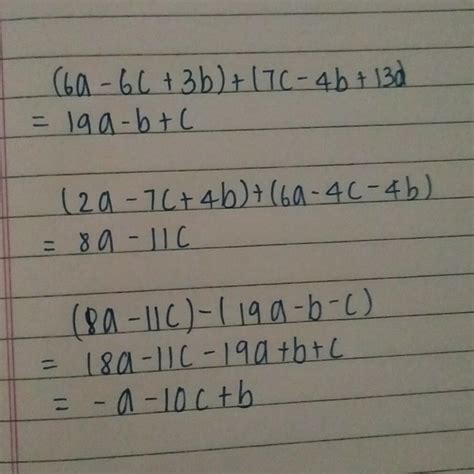 (6a - 6c + 3b) + (7c - 4b + 13a
= 19a - b + c
(2a - 7c + 4b) + (6a - 4c - 4b)
= 8a - 11c
(8a - 11c) - (19a - b - c)
= 18a - 11c - 19a + b + c
= -a - 10c + b